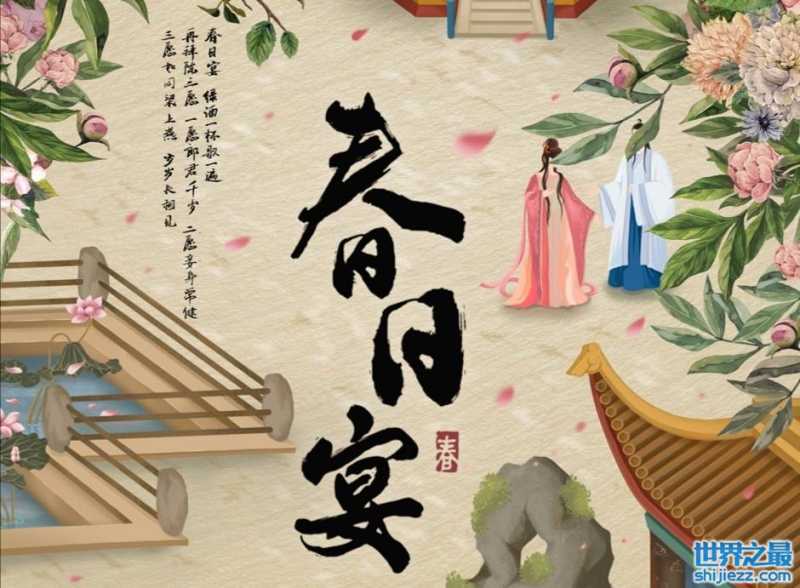 春日宴
春
春日宴 绿酒一杯歌一遍
再拜陈三愿 一愿郎君千岁 二愿妾身常健
三愿如同梁上燕 岁岁长相见
世界之最
shijiezz.com